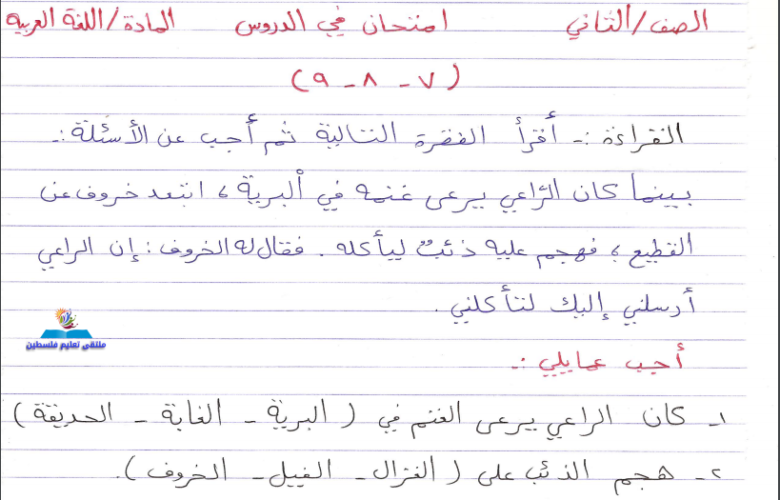 الصف/الثاني امتحان في الدروس المادة/اللغة العربية
(٧ - ٨ - ٩)
القراءة :- أقرأ الفقرة التالية ثم أجب عن الأسئلة :-
بينما كان الرّاعي يرعى غنمه في ألبرية، ابتعد خروف عن
القطيع، فهجم عليه ذئبٌ ليأكله. فقال له الخروف: إن الراعي
أرسلني إليك لتأكلني.
ملتقى تعليم فلسطين
أجب عمايلي :-
١- كان الراعي يرعى الغنم في (البرية - الغابة - الحديقة)
٢- هجم الذئب على (الغزال - الفيل - الخروف).